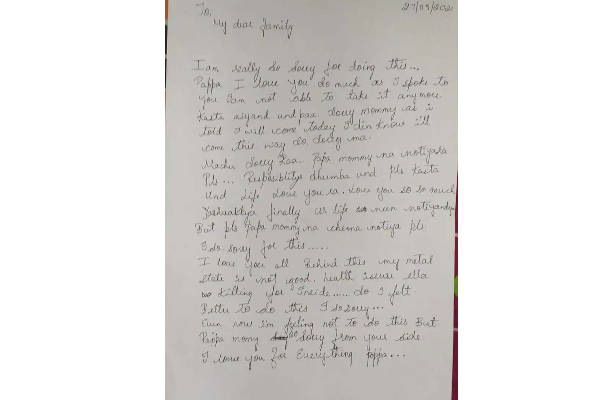 To, 27/09/2021
My dear family
I am really so sorry for doing this...
Pappa I love you so much as I spoke to
you I am not able to take it anymore
Kasta aiyand und paa. Sorry mommy as i
told I will come today I din know i'll
come this way so sorry ma.
sorry Papa mommy na
Pls... dhumba und pls Kasta
und life love you ra. Love you so so much
finally ur life nun
But pls Papa mommy na chenna notiya pls
I so sorry for this......
I love you all Behind this my metal
state is not good. health ella
Killing you Inside...... So I felt
Better to do this I so sorry...
Even now i'm feeling not to do this But
Pappa momy so sorry from your side
I love you for Everything pappa...